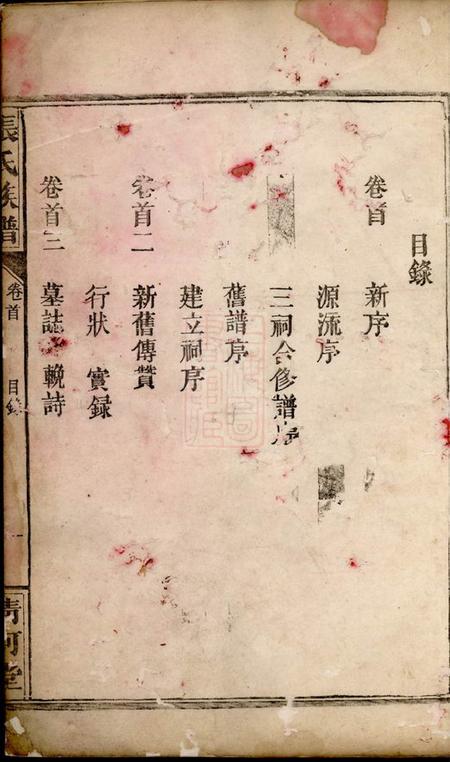 目錄
卷首 新序
源流序
三祠合修譜序
舊譜序
建立祠序
卷首二 新舊傳贊
行狀 實録
卷首三 墓誌 輓詩
張氏族譜 卷首 目錄 一 清河堂